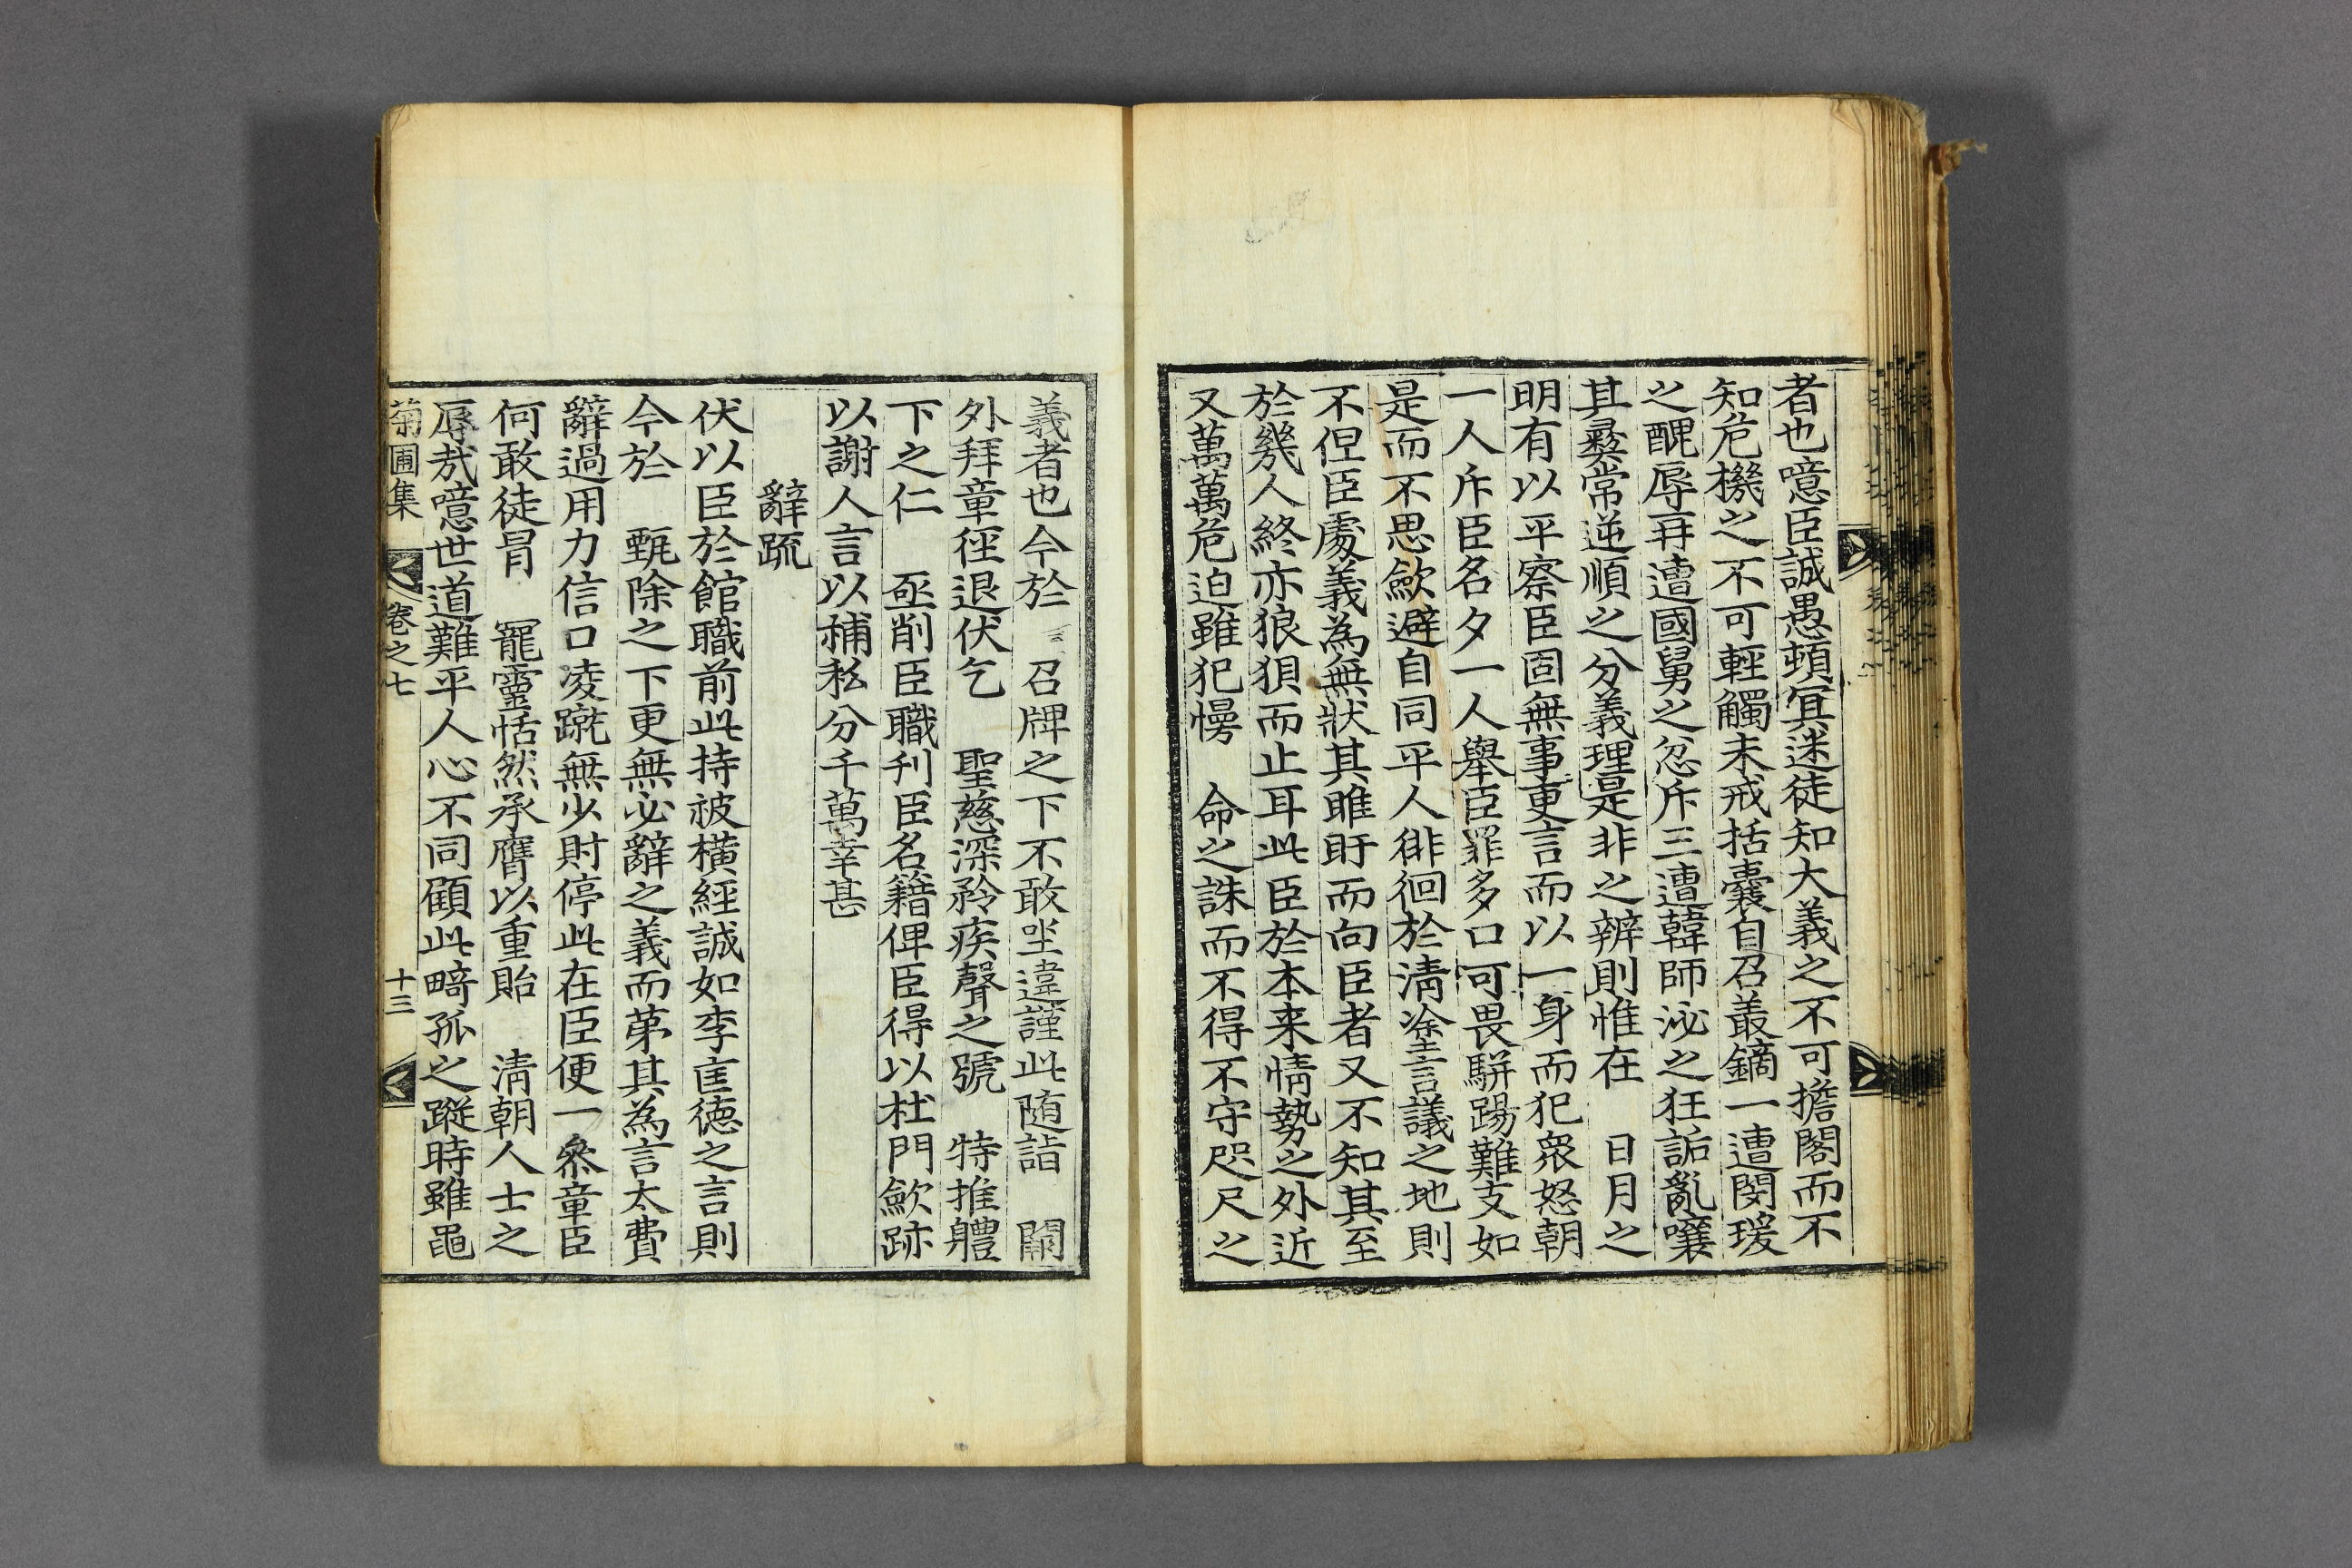 者也噫臣誠愚頓冥迷徒知大義之不可擔閣而不
知危機之不可輕觸未戒括囊自召叢鏑一遭閔瑗
之醜辱再遭國舅之忿斥三遭韓師泌之狂詬亂嚷
其彝常逆順之分義理是非之辨則惟在 日月之
明有以平察臣固無事更言而以一身而犯衆怒朝
一人斥臣名夕一人舉臣罪多口可畏騈踢難支如
是而不思歛避自同平人徘徊於淸塗言議之地則
不但臣處義為無狀其睢盱而向臣者又不知其至
於幾人終亦狼狽而止耳此臣於本来情勢之外近
又萬萬危迫雖犯慢 命之誅而不得不守咫尺之
義者也今於 召牌之下不敢坐違謹此随詣 闕
外拜章徑退伏乞 聖慈深矜疾聲之號 特推軆
下之仁 亟削臣職刊臣名籍俾臣得以杜門歛跡
以謝人言以補私分千萬幸甚
辭疏
伏以臣於館職前此持被橫經誠如李匡德之言則
今於 甄除之下更無必辭之義而苐其為言太費
辭過用力信口凌蹴無少財停此在臣便一叅章臣
何敢徒冐 寵靈恬然承膺以重貽 淸朝人士之
辱㦲噫世道難平人心不同顧此畸孤之蹤時雖黽
菊圃集 卷之七 十三